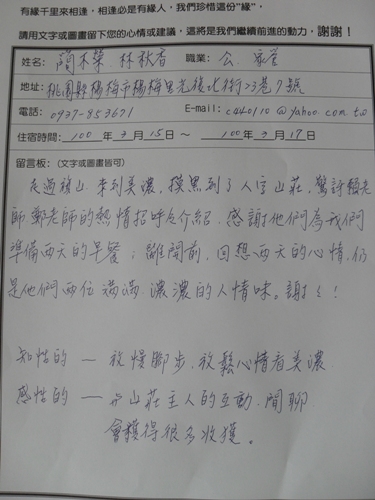 有緣千里來相逢，相逢必是有緣人，我們珍惜這份“緣”，
請用文字或圖畫留下您的心情或建議，這將是我們繼續前進的動力，謝謝！
姓名: 簡木榮 林秋香 職業: 公. 家管
地址: 桃園縣楊梅市楊梅里光復北街23巷7號
電話: 0937-853671 E-mail: c440110@yahoo.com.tw
住宿時間: 100 年 3 月 15 日～ 100 年 3 月 17 日
留言板: (文字或圖畫皆可)
走過旗山.來到美濃，摸黑到了人字山莊，驚訝賴老
師鄭老師的熱情招呼介紹，感謝他們為我們
準備兩天的早餐；離開前，回想兩天的心情，仍
是他們兩位滿滿濃濃的人情味。謝謝！
知性的 — 放慢腳步.放鬆心情看美濃
感性的 — 與山莊主人的互動.閒聊
會獲得很多收獲。